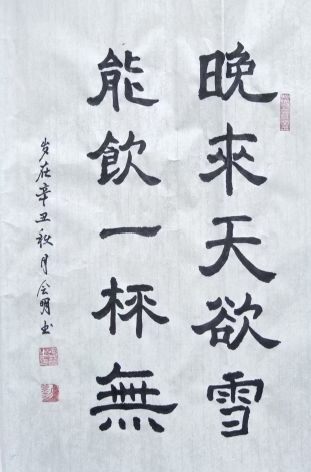 晚來天欲雪
能飲一杯無
岁在辛丑秋月会明书